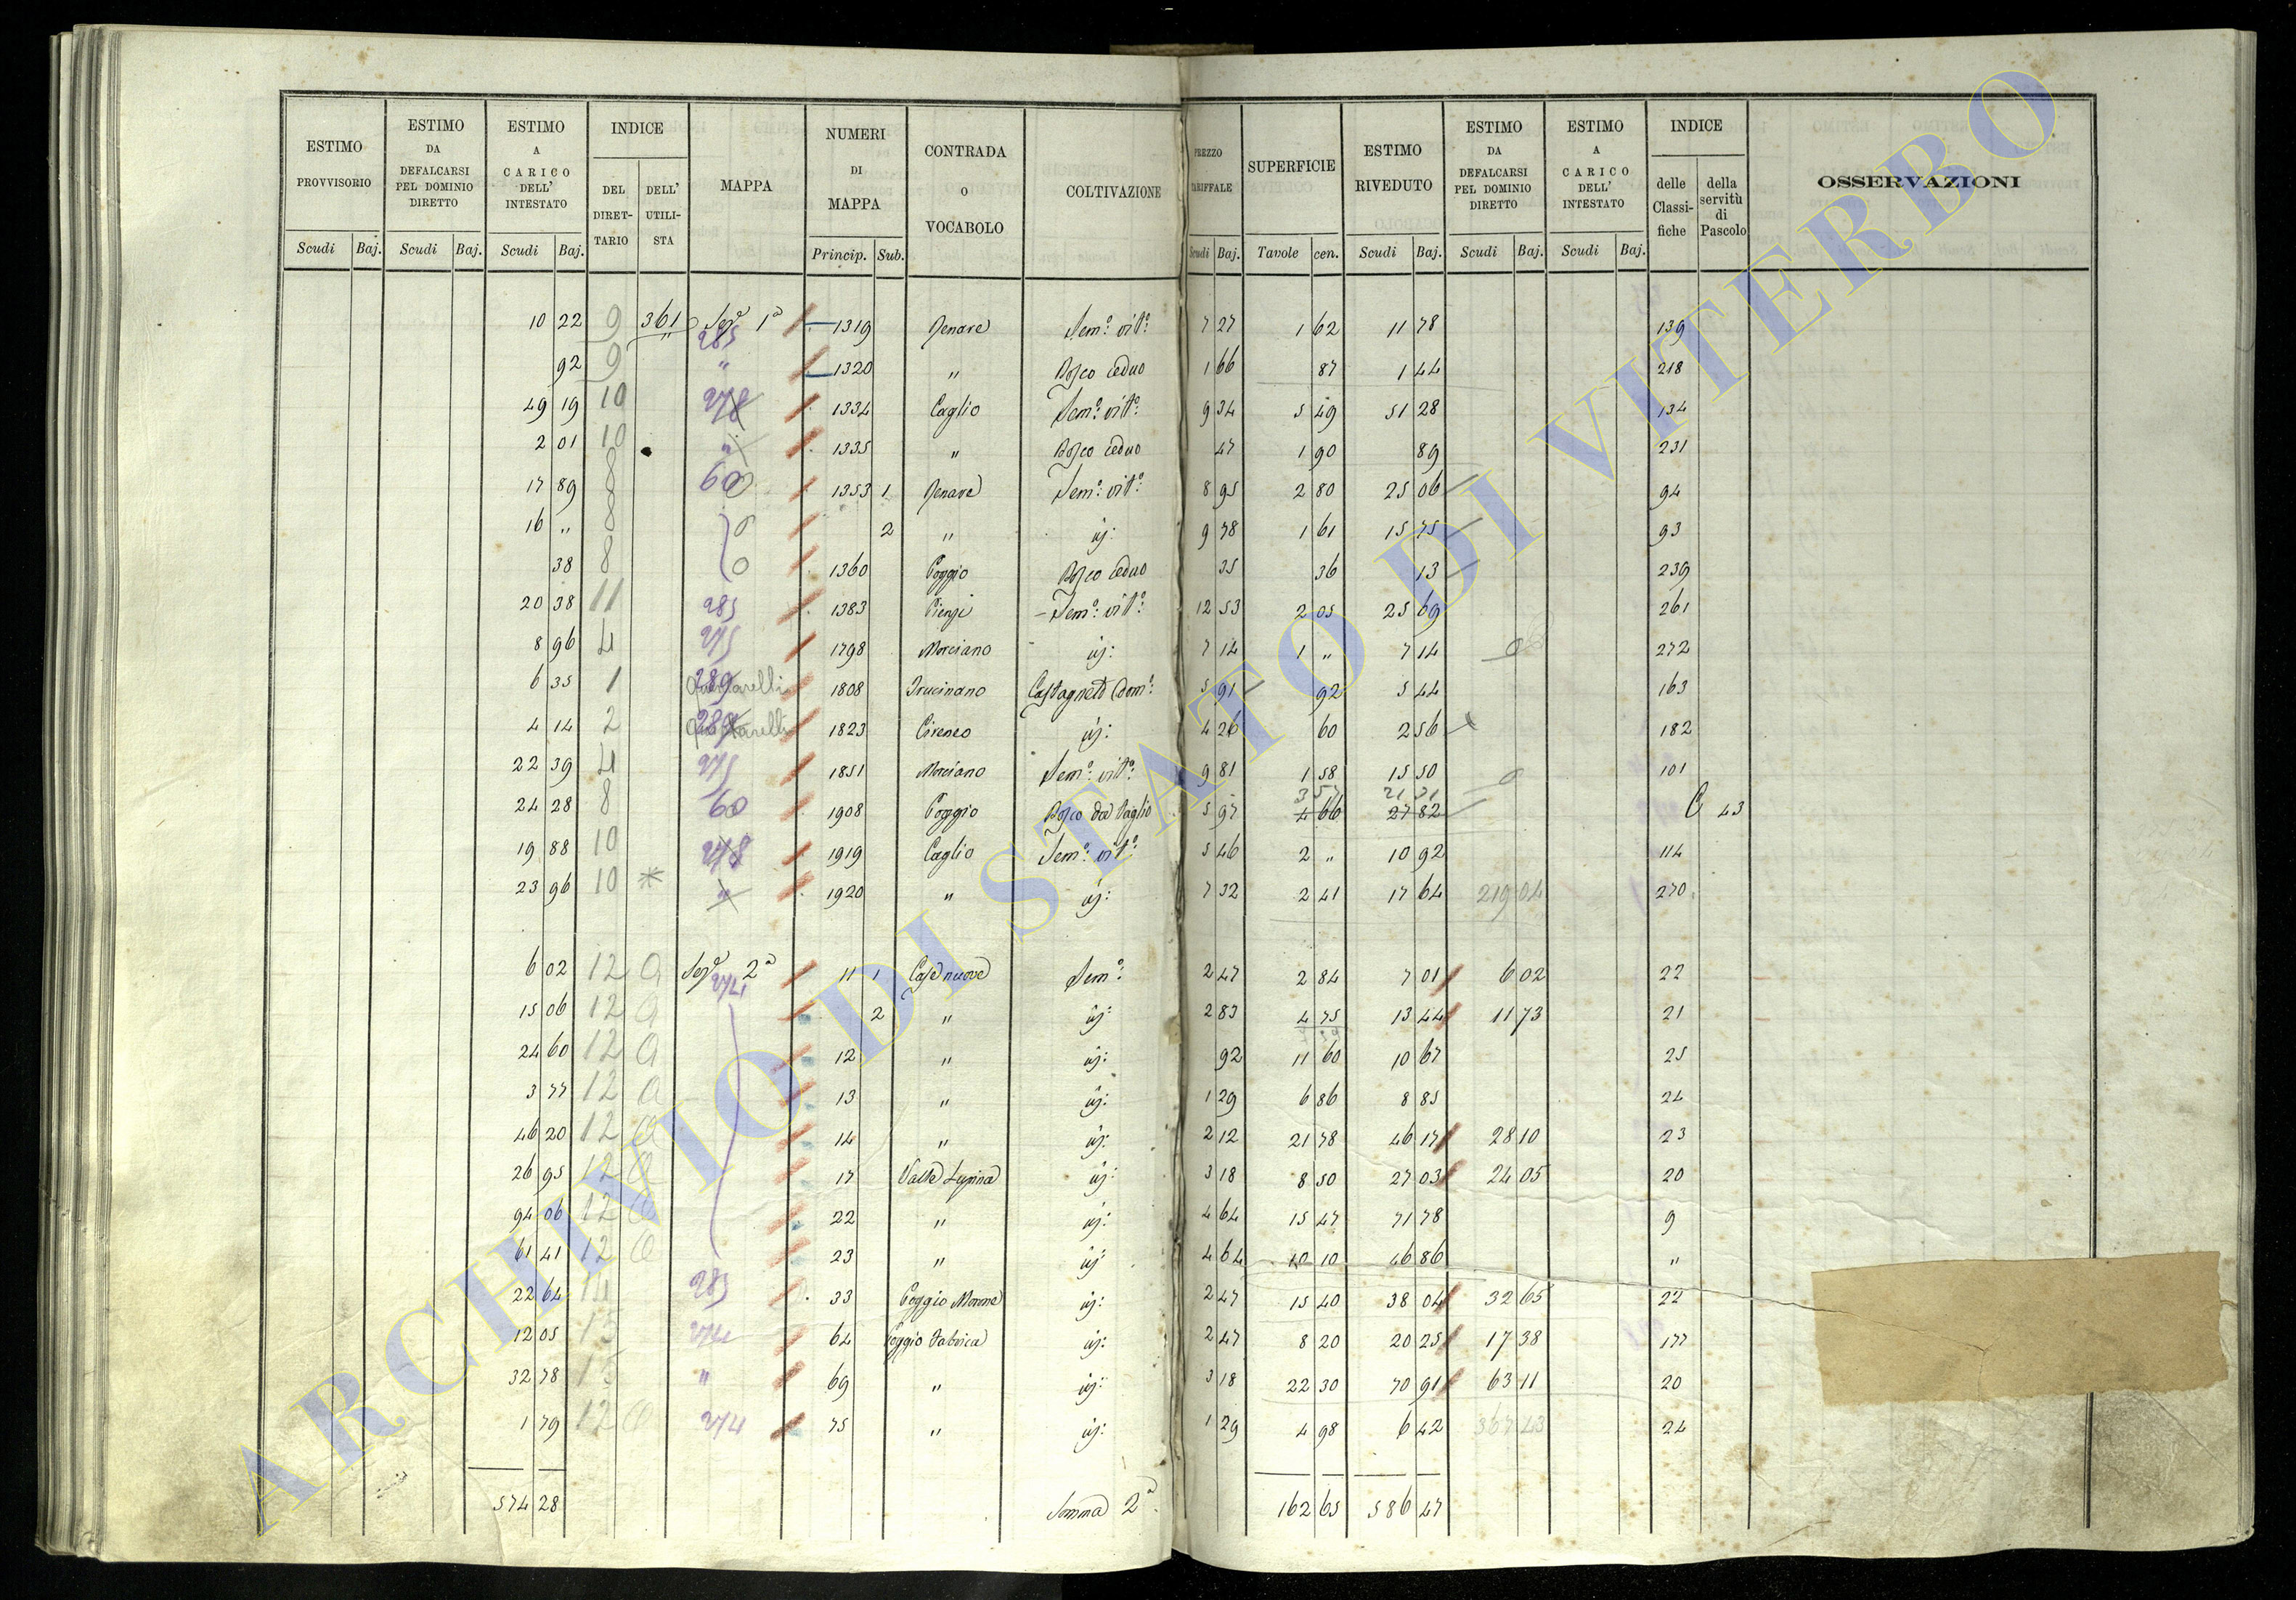 ESTIMO PROVVISORIO Scudi Baj.
ESTIMO DA DEFALCARSI PEL DOMINIO DIRETTO Scudi Baj.
ESTIMO A CARICO DELL' INTESTATO Scudi Baj.
INDICE DEL DIRETTARIO DELL' UTILISTA
MAPPA
NUMERI DI MAPPA Princip. Sub.
CONTRADA O VOCABOLO
COLTIVAZIONE
PREZZO TARIFFALE Scudi Baj.
SUPERFICIE Tavole cen.
ESTIMO RIVEDUTO Scudi Baj.
ESTIMO DA DEFALCARSI PEL DOMINIO DIRETTO Scudi Baj.
ESTIMO A CARICO DELL' INTESTATO Scudi Baj.
INDICE delle Classifiche della servitù di Pascolo
OSSERVAZIONI
10 22 9 361 Sez.e 1a 285 1319 Penave Sem.o vit.o 7 27 1 62 11 78 139
92 9 " 1320 " Bosco ceduo 1 66 87 1 44 218
49 19 10 278 1334 Caglio Sem.o vit.o 9 34 5 49 51 28 134
2 01 10 " 1335 " Bosco ceduo 47 1 90 89 231
17 89 8 60 1353 1 Penave Sem.o vit.o 8 95 2 80 25 06 94
16 " 8 2 " id: 9 78 1 61 15 75 93
38 8 1360 Poggio Bosco ceduo 35 36 13 239
20 38 11 285 1383 Sem.o vit.o 12 53 2 05 25 69 261
8 96 4 275 1798 Morciano id: 7 14 1 " 7 14 272
6 35 1 289 1808 Castagneto dom.o 5 91 92 5 44 163
4 14 2 289 1823 Cireneo id: 4 26 60 2 56 182
22 39 4 275 1851 Morciano Sem.o vit.o 9 81 1 58 15 50 101
24 28 8 60 1908 Poggio Bosco da taglio 5 97 3 57 4 66 21 31 27 82 C 43
19 88 10 278 1919 Caglio Sem.o vit.o 5 46 2 " 10 92 114
23 96 10 * " 1920 " id: 7 32 2 41 17 64 219 04 270
6 02 12 a Sez.e 2a 274 11 1 Case nuove Sem.o 2 47 2 84 7 01 6 02 22
15 06 12 a 2 " id: 2 83 4 75 13 44 11 73 21
24 60 12 a 12 " id: 92 11 60 10 67 25
3 77 12 a 13 " id: 1 29 6 86 8 85 24
46 20 12 a 14 " id: 2 12 21 78 46 17 28 10 23
26 95 12 a 17 Valle Lupina id: 3 18 8 50 27 03 24 05 20
94 06 12 a 22 " id: 4 64 15 47 71 78 9
61 41 12 a 23 " id: 4 64 10 10 46 86 "
22 64 14 285 33 Poggio Monne id: 2 47 15 40 38 04 32 65 22
12 05 15 274 64 Poggio Fabrica id: 2 47 8 20 20 25 17 38 177
32 78 15 " 69 " id: 3 18 22 30 70 91 63 11 20
1 79 12 a 274 75 " id: 1 29 4 98 6 42 367 43 24
574 28 Somma 2a 162 65 586 47
ARCHIVIO DI STATO DI VITERBO